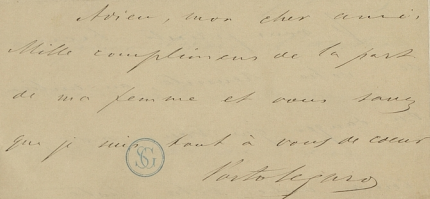 Adieu, mon cher ami,
Mille complimens de la part
de ma femme et vous savez
que je suis tout à vous de coeur
Porto Seguro
SG